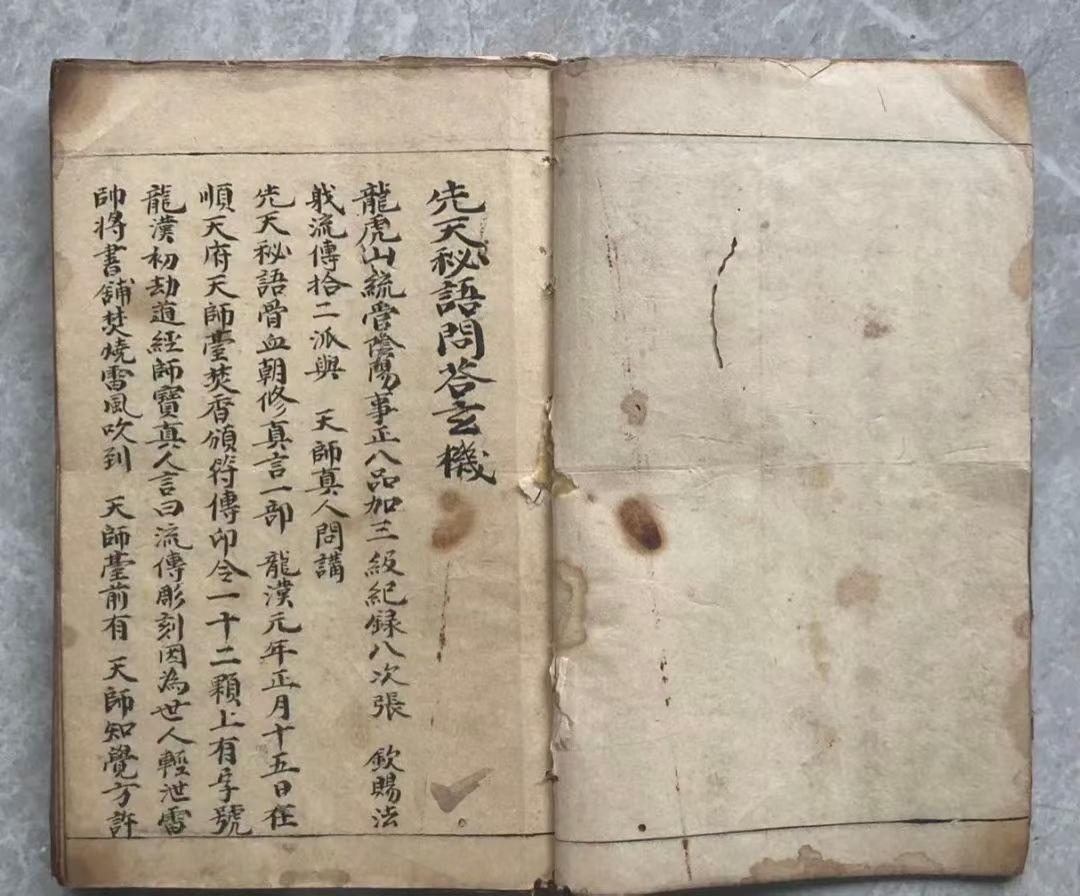 先天秘語問答玄機
龍虎山統管陰陽事正八品加三級紀録八次張　欽賜法
戝流傳拾二派與　天師真人問講
先天秘語骨血朝修真言一部　龍漢元年正月十五日在
順天府天師臺焚香頒符傳印令一十二顆上有字號
龍漢初劫道經師寶真人言曰流傳彫刻因為世人輕泄雷
帥將書舖焚燒雷風吹到　天師臺前有　天師知覺方許